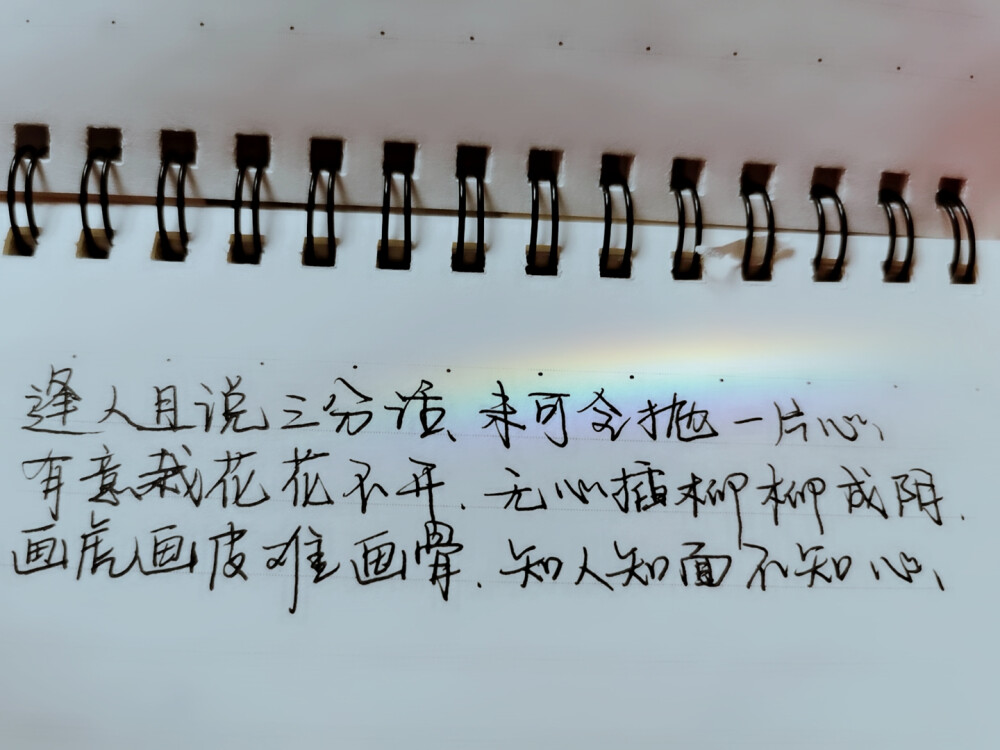 逢人且说三分话、未可全抛一片心、
有意栽花花不开.无心插柳柳成阴.
画虎画皮难画骨.知人知面不知心、